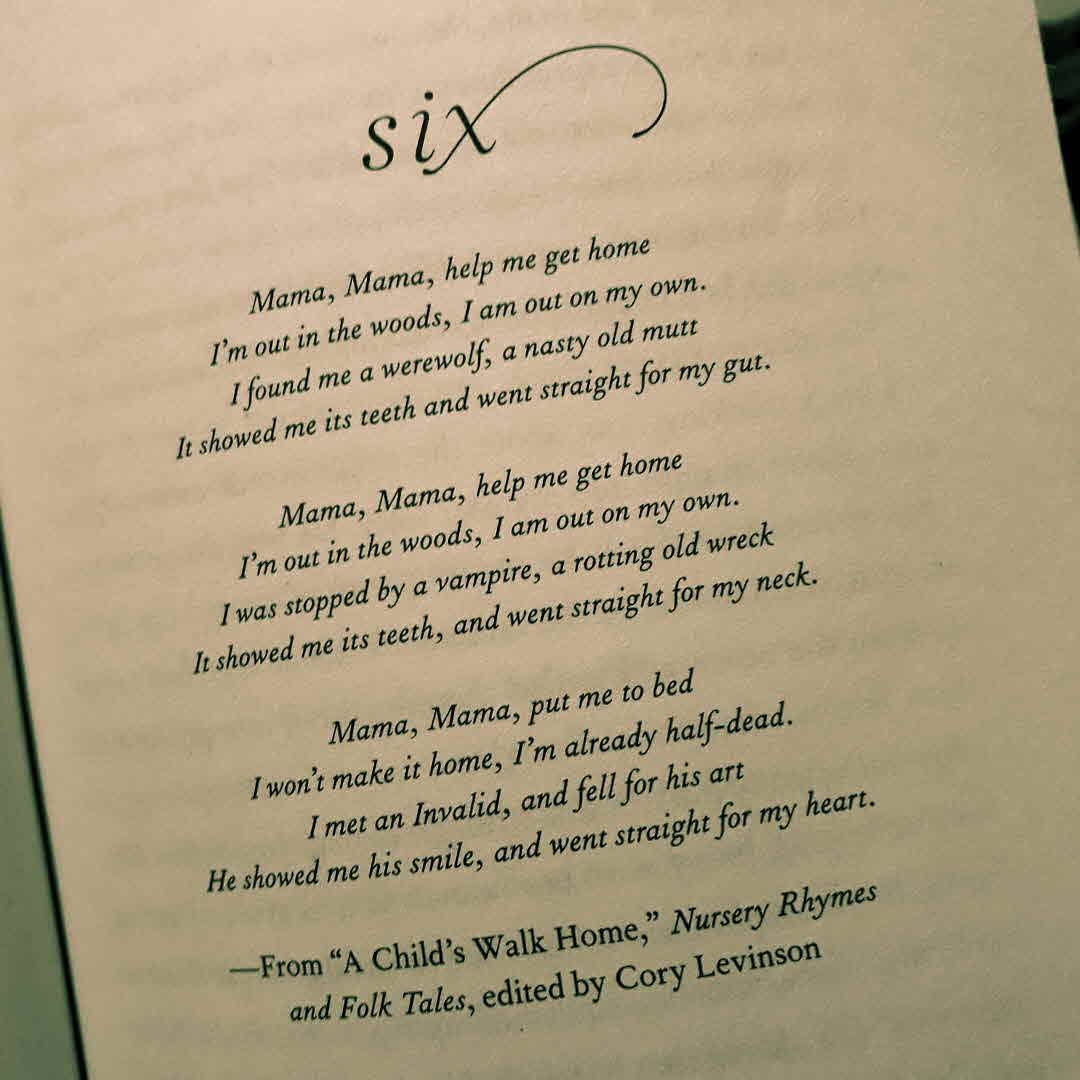 six
Mama, Mama, help me get home
I'm out in the woods, I am out on my own.
I found me a werewolf, a nasty old mutt
It showed me its teeth and went straight for my gut.
Mama, Mama, help me get home
I'm out in the woods, I am out on my own.
I was stopped by a vampire, a rotting old wreck
It showed me its teeth, and went straight for my neck.
Mama, Mama, put me to bed
I won't make it home, I'm already half-dead.
I met an Invalid, and fell for his art
He showed me his smile, and went straight for my heart.
—From “A Child's Walk Home,” Nursery Rhymes
and Folk Tales, edited by Cory Levinson